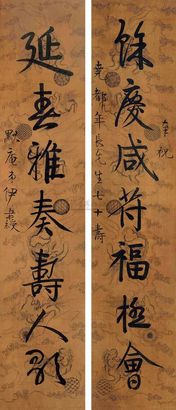 餘慶咸符福極會
奉祝
堯都年長先生七十壽
延春雅奏壽人歌
默庵弟伊秉綬